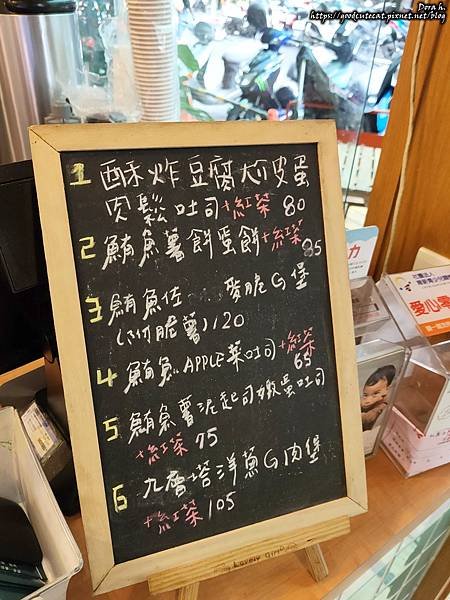 Dora h.
https://goodcutecat.pixnet.net/blog
1 酥炸豆腐尬皮蛋
肉鬆吐司+紅茶 80
2 鮪魚薯餅蛋餅+紅茶
85
3 鮪魚佐 麥脆G堡
(附脆薯) 120
4 鮪魚APPLE菜吐司+紅茶
65
5 鮪魚薯泥起司嫩蛋吐司
+紅茶 75
6 九層塔洋蔥G肉堡
+紅茶 105
Lovely Girl
力
愛心